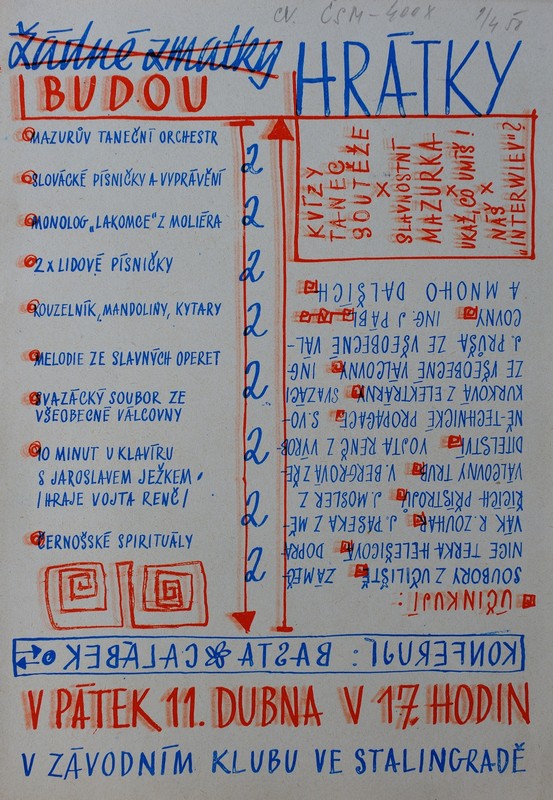 ČSM-400X
Žádné zmatky
BUDOU
HRÁTKY
MAZURŮV TANEČNÍ ORCHESTR
SLOVÁCKÉ PÍSNIČKY A VYPRÁVĚNÍ
MONOLOG „LAKOMCE" Z MOLIÉRA
2 x LIDOVÉ PÍSNIČKY
KOUZELNÍK, MANDOLINY, KYTARY
MELODIE ZE SLAVNÝCH OPERET
SVAZÁCKÝ SOUBOR ZE
VŠEOBECNÉ VÁLCOVNY
10 MINUT U KLAVÍRU
S JAROSLAVEM JEŽKEM
/HRAJE VOJTA RENČ/
ČERNOŠSKÉ SPIRITUÁLY
2
2
2
2
2
2
2
2
KVÍZY
TANEC
SOUTĚŽE
x
SLAVNOSTNÍ
MAZURKA
x
UKAŽ, CO UMÍŠ!
x
NÁŠ
„INTERWIEV"?
ÚČINKUJÍ:
SOUBORY Z UČILIŠTĚ ZÁMEČ-
NICE TERKA HELEŠICOVÁ DOPRA-
VÁK R. ZOUHAR J. PAŠEKA Z MĚ-
ŘICÍCH PŘÍSTROJŮ J. MOSLER Z
VÁLCOVNY TRUB V. BERGROVÁ Z ŘE-
DITELSTVÍ VOJTA RENČ Z VÝROB-
NĚ-TECHNICKÉ PROPAGACE S. VO-
KURKOVÁ Z ELEKTRÁRNY SVAZÁCI
ZE VŠEOBECNÉ VÁLCOVNY ING.
J. PRŮŠA ZE VŠEOBECNÉ VÁL-
COVNY ING. J. PÁBL
A MNOHO DALŠÍCH
KONFERUJÍ: BAŠTA CALÁBEK
V PÁTEK 11. DUBNA V 17. HODIN
V ZÁVODNÍM KLUBU VE STALINGRADĚ